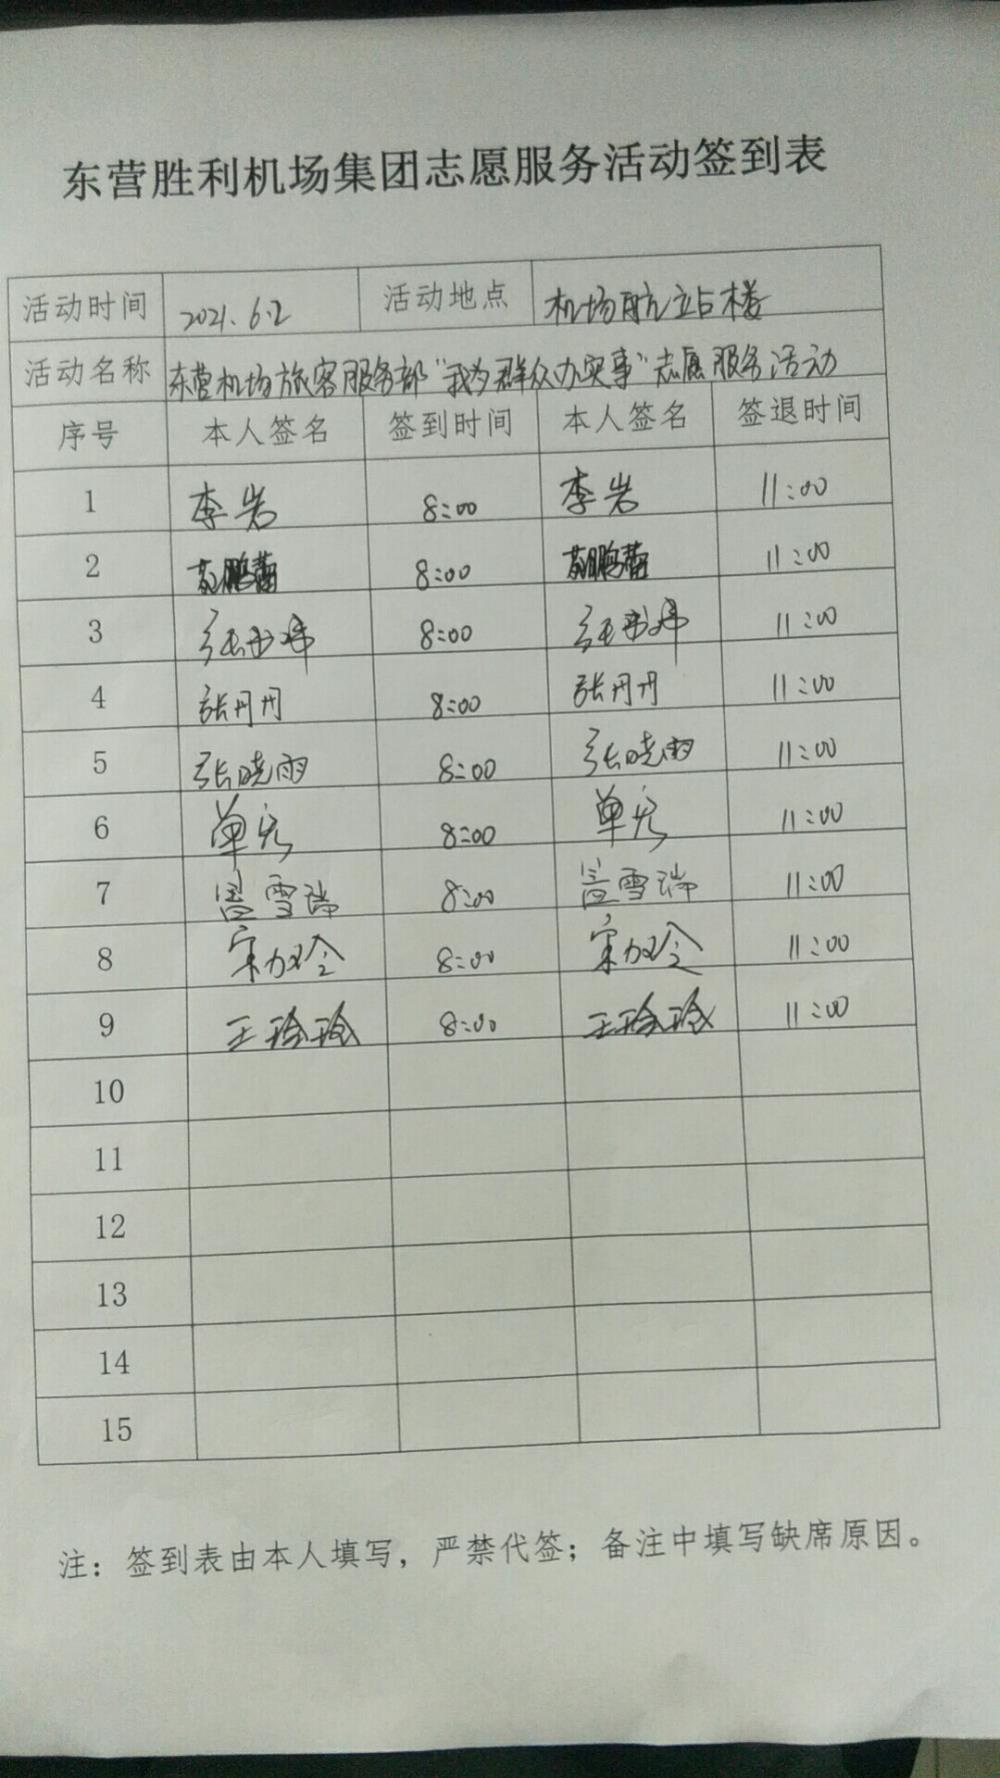 东营胜利机场集团志愿服务活动签到表
活动时间 2021.6.2 活动地点 机场航站楼
活动名称 东营机场旅客服务部“我为群众办实事”志愿服务活动
序号 本人签名 签到时间 本人签名 签退时间
1 李岩 8:00 李岩 11:00
2 8:00 11:00
3 8:00 11:00
4 张丹丹 8:00 张丹丹 11:00
5 张晓雨 8:00 张晓雨 11:00
6 单宏 8:00 单宏 11:00
7 盖雪瑞 8:00 盖雪瑞 11:00
8 宋加玲 8:00 宋加玲 11:00
9 王玲玲 8:00 王玲玲 11:00
10
11
12
13
14
15
注：签到表由本人填写，严禁代签；备注中填写缺席原因。